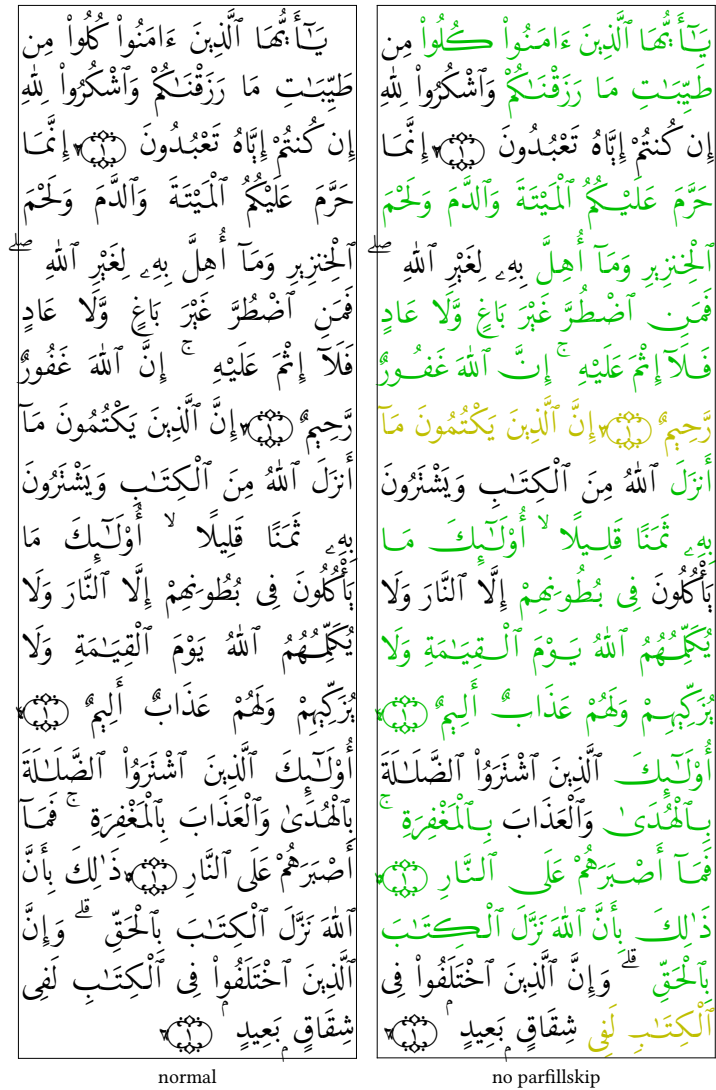 يَٰٓأَيُّهَا ٱلَّذِينَ ءَامَنُوا۟ كُلُوا۟ مِن
طَيِّبَٰتِ مَا رَزَقْنَٰكُمْ وَٱشْكُرُوا۟ لِلَّهِ
إِن كُنتُمْ إِيَّاهُ تَعْبُدُونَ ۝ إِنَّمَا
حَرَّمَ عَلَيْكُمُ ٱلْمَيْتَةَ وَٱلدَّمَ وَلَحْمَ
ٱلْخِنزِيرِ وَمَآ أُهِلَّ بِهِۦ لِغَيْرِ ٱللَّهِ ۖ
فَمَنِ ٱضْطُرَّ غَيْرَ بَاغٍ وَّلَا عَادٍ
فَلَآ إِثْمَ عَلَيْهِ ۚ إِنَّ ٱللَّهَ غَفُورٌ
رَّحِيمٌ ۝ إِنَّ ٱلَّذِينَ يَكْتُمُونَ مَآ
أَنزَلَ ٱللَّهُ مِنَ ٱلْكِتَٰبِ وَيَشْتَرُونَ
بِهِۦ ثَمَنًا قَلِيلًا ۙ أُو۟لَٰٓئِكَ مَا
يَأْكُلُونَ فِى بُطُونِهِمْ إِلَّا ٱلنَّارَ وَلَا
يُكَلِّمُهُمُ ٱللَّهُ يَوْمَ ٱلْقِيَٰمَةِ وَلَا
يُزَكِّيهِمْ وَلَهُمْ عَذَابٌ أَلِيمٌ ۝
أُو۟لَٰٓئِكَ ٱلَّذِينَ ٱشْتَرَوُا۟ ٱلضَّلَٰلَةَ
بِٱلْهُدَىٰ وَٱلْعَذَابَ بِٱلْمَغْفِرَةِ ۚ فَمَآ
أَصْبَرَهُمْ عَلَى ٱلنَّارِ ۝ ذَٰلِكَ بِأَنَّ
ٱللَّهَ نَزَّلَ ٱلْكِتَٰبَ بِٱلْحَقِّ ۗ وَإِنَّ
ٱلَّذِينَ ٱخْتَلَفُوا۟ فِى ٱلْكِتَٰبِ لَفِى
شِقَاقٍۭ بَعِيدٍۢ ۝
normal
يَٰٓأَيُّهَا ٱلَّذِينَ ءَامَنُوا۟ كُلُوا۟ مِن
طَيِّبَٰتِ مَا رَزَقْنَٰكُمْ وَٱشْكُرُوا۟ لِلَّهِ
إِن كُنتُمْ إِيَّاهُ تَعْبُدُونَ ۝ إِنَّمَا
حَرَّمَ عَلَيْكُمُ ٱلْمَيْتَةَ وَٱلدَّمَ وَلَحْمَ
ٱلْخِنزِيرِ وَمَآ أُهِلَّ بِهِۦ لِغَيْرِ ٱللَّهِ ۖ
فَمَنِ ٱضْطُرَّ غَيْرَ بَاغٍ وَّلَا عَادٍ
فَلَآ إِثْمَ عَلَيْهِ ۚ إِنَّ ٱللَّهَ غَفُورٌ
رَّحِيمٌ ۝ إِنَّ ٱلَّذِينَ يَكْتُمُونَ مَآ
أَنزَلَ ٱللَّهُ مِنَ ٱلْكِتَٰبِ وَيَشْتَرُونَ
بِهِۦ ثَمَنًا قَلِيلًا ۙ أُو۟لَٰٓئِكَ مَا
يَأْكُلُونَ فِى بُطُونِهِمْ إِلَّا ٱلنَّارَ وَلَا
يُكَلِّمُهُمُ ٱللَّهُ يَوْمَ ٱلْقِيَٰمَةِ وَلَا
يُزَكِّيهِمْ وَلَهُمْ عَذَابٌ أَلِيمٌ ۝
أُو۟لَٰٓئِكَ ٱلَّذِينَ ٱشْتَرَوُا۟ ٱلضَّلَٰلَةَ
بِٱلْهُدَىٰ وَٱلْعَذَابَ بِٱلْمَغْفِرَةِ ۚ
فَمَآ أَصْبَرَهُمْ عَلَى ٱلنَّارِ ۝
ذَٰلِكَ بِأَنَّ ٱللَّهَ نَزَّلَ ٱلْكِتَٰبَ
بِٱلْحَقِّ ۗ وَإِنَّ ٱلَّذِينَ ٱخْتَلَفُوا۟ فِى
ٱلْكِتَٰبِ لَفِى شِقَاقٍۭ بَعِيدٍۢ ۝
no parfillskip